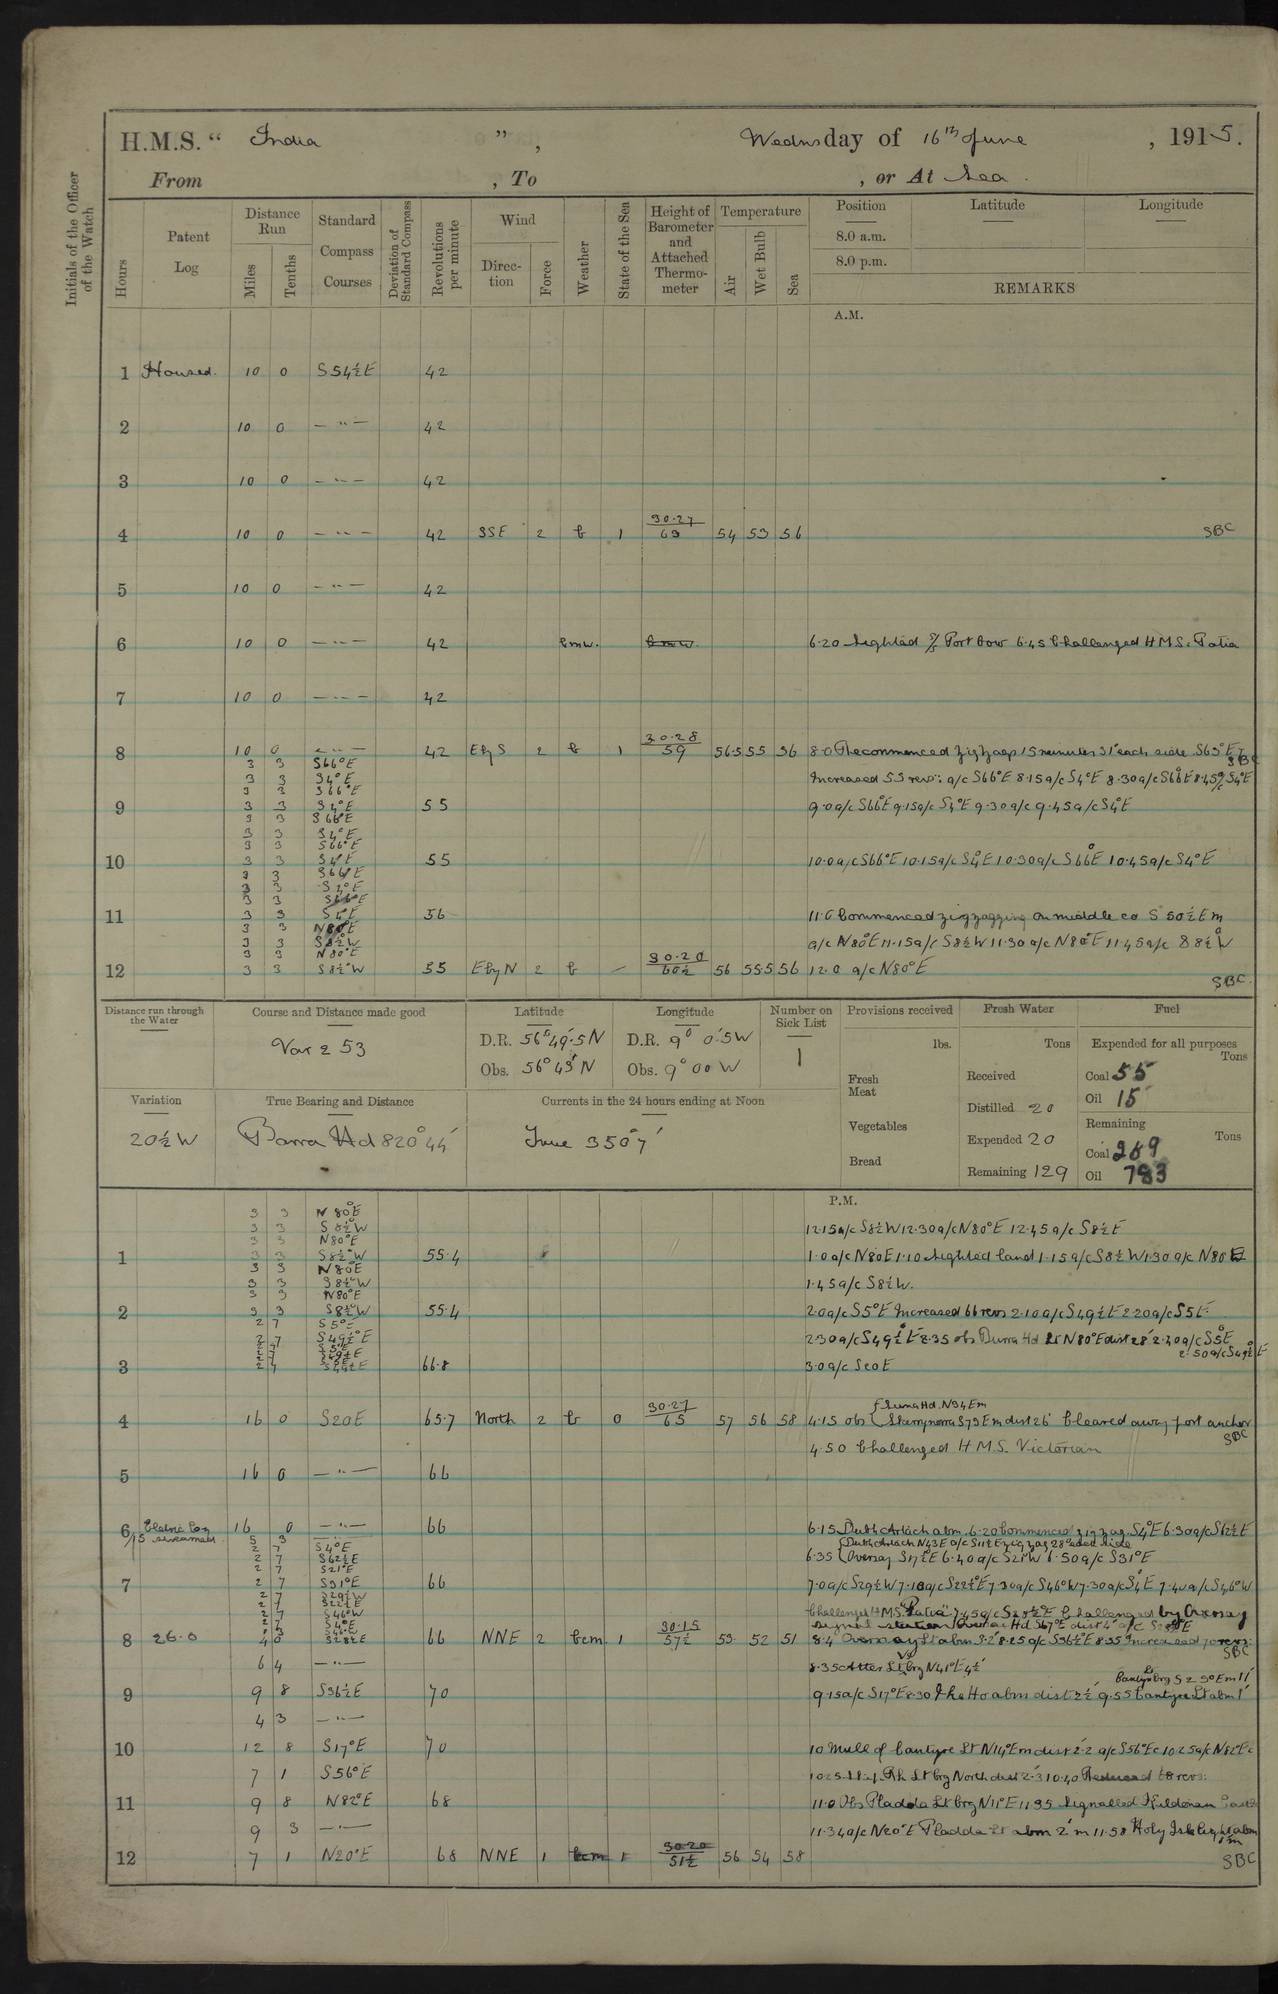 H.M.S. “ India ” , Wednsday of 16th June , 1915.
From , To , or At Sea .
Initials of the Officer of the Watch
Hours
Patent Log
Distance Run
Miles
Tenths
Standard Compass Courses
Deviation of Standard Compass
Revolutions per minute
Wind
Direction
Force
Weather
State of the Sea
Height of Barometer and Attached Thermometer
Temperature
Air
Wet Bulb
Sea
Position Latitude Longitude
8.0 a.m.
8.0 p.m.
REMARKS
A.M.
1 Housed. 10 0 S54½E 42
2 10 0 — " — 42
3 10 0 — " — 42
4 10 0 — " — 42 SSE 2 b 1 30.27 63 54 53 56 SBC
5 10 0 — " — 42
6 10 0 — " — 42 bmw. 6.20 Sighted S/S Port bow 6.45 Challenged H M S. Patia
7 10 0 — " — 42
8 10 0 — " — 42 E by S 2 b 1 30.28 59 56.5 55 56 8.0 Recommenced zigzags 15 minutes 31° each side
3 3 S66°E SBC
3 3 S4°E Increased 55 revs: a/c S66°E 8.15 a/c S4°E 8.30 a/c S66°E 8.45 a/c S4°E
3 2 S66°E
9 3 3 S4°E 55 9.0 a/c S66°E 9.15 a/c S4°E 9.30 a/c 9.45 a/c S4°E
3 3 S66°E
3 3 S4°E
3 3 S66°E
10 3 3 S4°E 55 10.0 a/c S66°E 10.15 a/c S4°E 10.30 a/c S66°E 10.45 a/c S4°E
3 3 S66°E
3 3 S4°E
3 3 S66°E
11 3 3 S4°E 56 11.0 Commenced zigzagging on middle co S 50½E m
3 3 N80°E
3 3 S8½W a/c N80°E 11.15 a/c S8½W 11.30 a/c N80°E 11.45 a/c S8½°W
3 3 N80°E
12 3 3 S8½°W 55 E by N 2 b — 30.20 60½ 56 55.5 56 12.0 a/c N80°E
SBC
Distance run through the Water
Course and Distance made good
Var 2 53
Latitude
D.R. 56° 49'.5 N
Obs. 56° 43' N
Longitude
D.R. 9° 0'.5 W
Obs. 9° 00 W
Number on Sick List
1
Provisions received
lbs.
Fresh Meat
Vegetables
Bread
Fresh Water
Tons
Received
Distilled 20
Expended 20
Remaining 129
Fuel
Expended for all purposes
Tons
Coal 55
Oil 15
Remaining
Tons
Coal 269
Oil 783
Variation
20½ W
True Bearing and Distance
Barra Hd S20° 44'
Currents in the 24 hours ending at Noon
True 350° 7'
P.M.
3 3 N 80°E
3 3 S 8½°W 12.15 a/c S8½W 12.30 a/c N80°E 12.45 a/c S8½E
3 3 N80°E
1 3 3 S8½°W 55.4 1.0 a/c N80E 1.10 Sighted land 1.15 a/c S8½W 1.30 a/c N80E
3 3 N80E
3 3 S8½°W 1.45 a/c S8½W.
3 3 N80°E
2 3 3 S8½°W 55.4 2.0 a/c S5°E Increased 66 revs 2.10 a/c S49½E 2.20 a/c S5E
2 7 S5°E
2 7 S49½°E 2.30 a/c S49½°E 2.35 obs Hd Lt N80°E dist 28' 2.40 a/c S5°E
2 7 S5°E 2.50 a/c S49½°E
2 7 S49½E
3 66.8 3.0 a/c S20E
4 16 0 S20E 65.7 North 2 b 0 30.27 65 57 56 58 4.15 obs Skerryvore S73E m dist 26' Cleared away port anchor
SBC
4.50 Challenged H.M.S. Victorian
5 16 0 — " — 66
6 Electric Log 16 0 — " — 66 6.15 Dubh Artach abm. 6.20 Commenced zigzag S4°E 6.30 a/c S62½E
5 3
2 7 S4°E Dubh Artach N43E a/c S11½E zigzag 28° each side
2 7 S62½E 6.35 Oversay S17½E 6.40 a/c S21°W 6.50 a/c S31°E
2 7 S21°E
7 2 7 S31°E 66 7.0 a/c S29½W 7.10 a/c S22½°E 7.30 a/c S46°W 7.30 a/c S4°E 7.40 a/c S46°W
2 7 S29½W
2 7 S22½E
2 7 S46°W Challenged H.M.S. "Patia" 7.45 a/c S28½°E Challenged by Oversay
2 7 S4°E signal station
8 26.0 4 0 S28½E 66 NNE 2 bcm 1 30.15 57½ 53 52 51 8.4 Oversay Lt abm 3.2' 8.25 a/c S36½°E 8.35 Increased 70 revs:
SBC
6 4 — " — 8.35 Lt brg N41°E 4½'
9 9 8 S36½E 70 9.15 a/c S17°E 8.30 The Ho abm dist 2½' 9.55 Cantyre Lt abm 1'
4 3 — " —
10 12 8 S17°E 70 10 Mull of Cantyre Lt N14°E m dist 2.2 a/c S56°E 10.25 a/c N82°E
7 1 S56°E Lt brg North dist 2.3 10.40 Reduced 68 revs:
11 9 8 N82°E 68 11.0 Obs Pladda Lt brg N11°E 11.35 Signalled Kildonan
9 3 — " — 11.34 a/c N20°E Pladda Lt abm 2' m 11.58 Holy Isle Light abm
12 7 1 N20°E 68 NNE 1 bcm 1 30.20 51½ 56 54 58
SBC